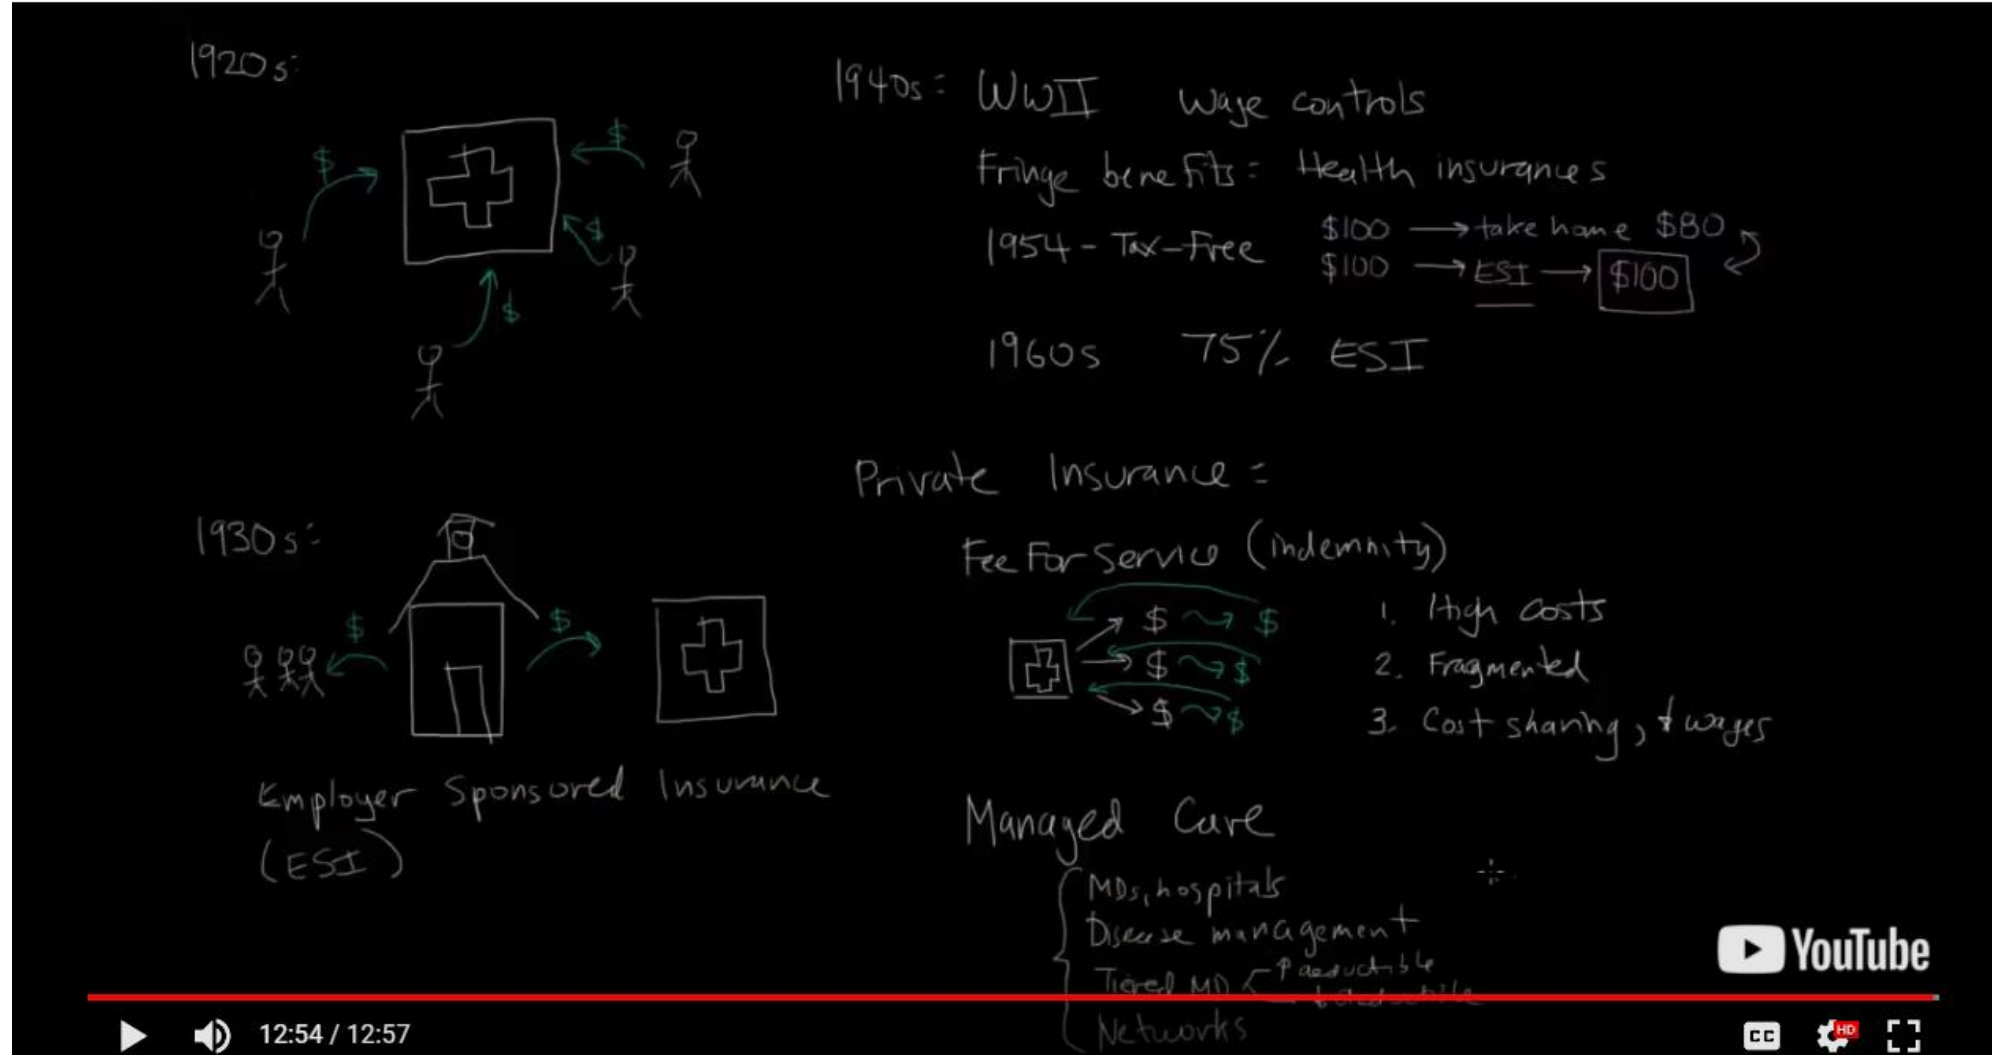 1920s:
$
$
$
$
1930s:
$
$
Employer Sponsored Insurance
(ESI)
1940s: WWII Wage controls
Fringe benefits: Health insurances
1954 - Tax-Free
$100 → take home $80
$100 → ESI → $100
1960s 75% ESI
Private Insurance:
Fee For Service (indemnity)
$ $
$ $
$ $
1. High costs
2. Fragmented
3. Cost sharing, ↓ wages
Managed Care
MDs, hospitals
Disease management
Tiered MD ↑ deductible
↓ deductible
Networks
YouTube
12:54 / 12:57
CC
HD